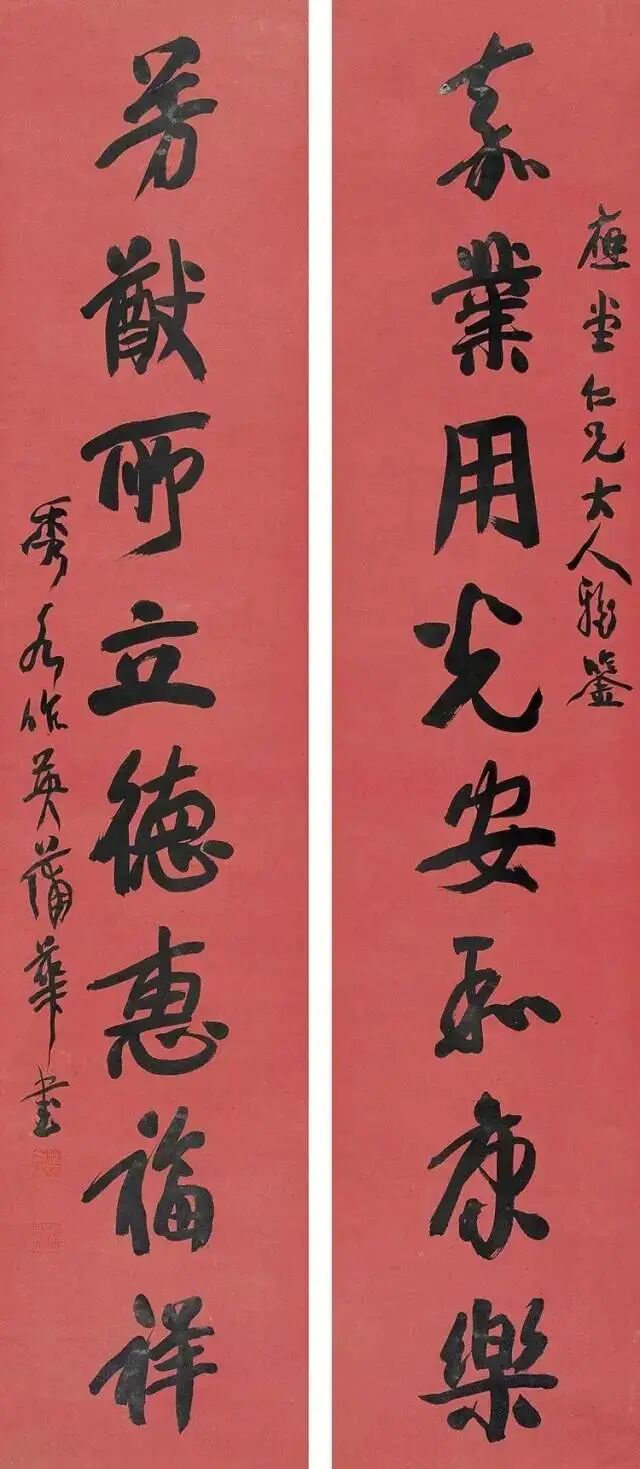 應堂仁兄大人雅鑒
嘉業用光安和康樂
芳猷所立德惠福祥
秀水作英蒲華書